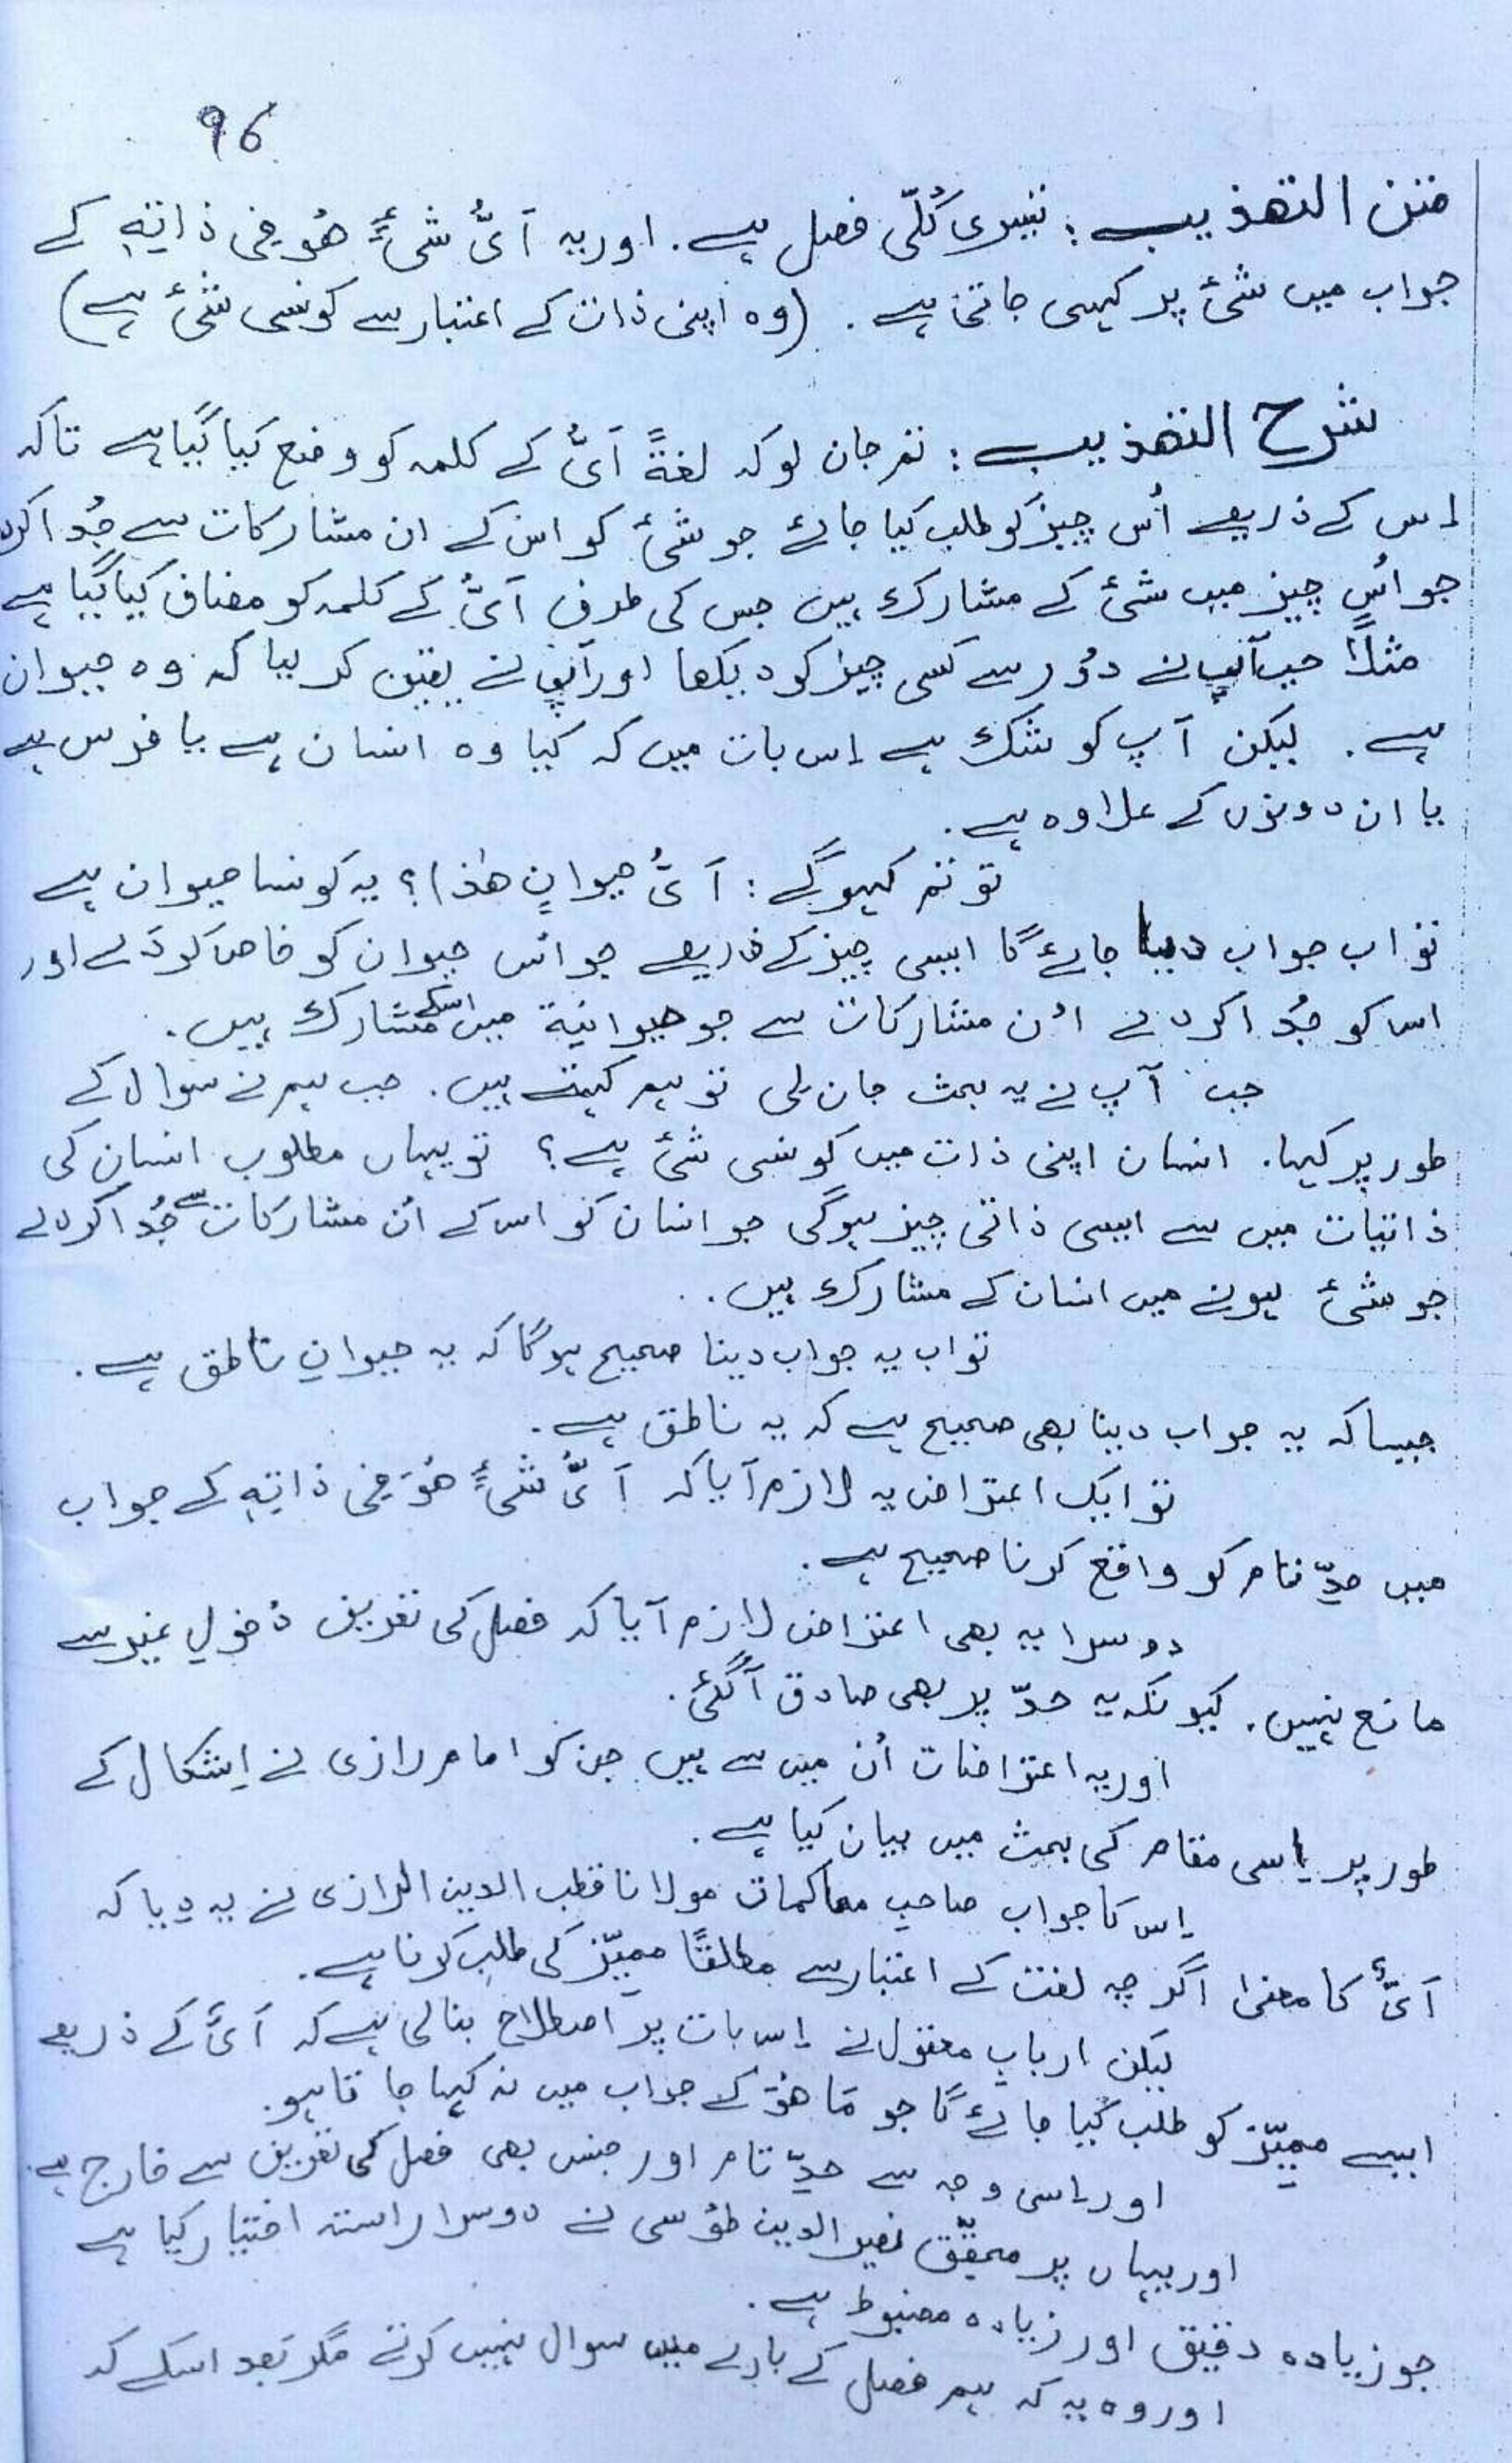 96
متن التھذیب : تیسری کُلّی فصل ہے. اور یہ اَیُّ شیٔءٍ ھُو فِی ذاتِہٖ کے
جواب میں شئ پر کہی جاتی ہے. (وہ اپنی ذات کے اعتبار سے کونسی شئ ہے)
شرح التھذیب : تم جان لو کہ لغةً اَیُّ کے کلمہ کو وضع کیا گیا ہے تاکہ
اِس کے ذریعے اُس چیز کو طلب کیا جائے جو شئ کو اس کے ان مشارکات سے جُدا کردے
جو اُس چیز میں شئ کے مشارک ہیں جس کی طرف اَیُّ کے کلمہ کو مضاف کیا گیا ہے
مثلاً جب آپ نے دُور سے کسی چیز کو دیکھا اور آپ نے یقین کر لیا کہ وہ حیوان
ہے. لیکن آپ کو شک ہے اِس بات میں کہ کیا وہ انسان ہے یا فرس ہے
یا ان دونوں کے علاوہ ہے.
تو تم کہو گے : اَیُّ حیوانٍ ھٰذا؟ یہ کونسا حیوان ہے
تو اب جواب دیا جائے گا ایسی چیز کے ذریعے جو اُس حیوان کو خاص کردے اور
اس کو جُدا کردے اُن مشارکات سے جو حیوانیة میں اسکے مشارک ہیں.
جب آپ نے یہ بحث جان لی تو ہم کہتے ہیں. جب ہم نے سوال کے
طور پر کہا. انسان اپنی ذات میں کونسی شئ ہے؟ تو یہاں مطلوب انسان کی
ذاتیات میں سے ایسی ذاتی چیز ہوگی جو انسان کو اس کے اُن مشارکات سے جُدا کردے
جو شئ ہونے میں انسان کے مشارک ہیں.
تو اب یہ جواب دینا صحیح ہوگا کہ یہ حیوانِ ناطق ہے.
جیسا کہ یہ جواب دینا بھی صحیح ہے کہ یہ ناطق ہے.
تو ایک اعتراض یہ لازم آیا کہ اَیُّ شیٔءٍ ھُوَ فِی ذاتِہٖ کے جواب
میں حدِّ تام کو واقع کرنا صحیح ہے.
دوسرا یہ بھی اعتراض لازم آیا کہ فصل کی تعریف دُخولِ غیر سے
مانع نہیں. کیونکہ یہ حدّ پر بھی صادق آگئی.
اور یہ اعتراضات اُن میں سے ہیں جن کو امام رازی نے اِشکال کے
طور پر اِسی مقام کی بحث میں بیان کیا ہے.
اِس کا جواب صاحبِ محاکمات مولانا قطب الدین الرازی نے یہ دیا کہ
اَیُّ کا معنیٰ اگرچہ لغت کے اعتبار سے مطلقًا ممیِّز کی طلب کرنا ہے.
لیکن اربابِ معقول نے اِس بات پر اصطلاح بنالی ہے کہ اَیُّ کے ذریعے
ایسے ممیِّز کو طلب کیا جائے گا جو مَا ھُوَ کے جواب میں نہ کہا جاتا ہو.
اور اِسی وجہ سے حدِّ تام اور جنس بھی فصل کی تعریف سے خارج ہے.
اور یہاں پر محقّق نصیر الدین طوُسی نے دوسرا راستہ اختیار کیا ہے
جو زیادہ دقیق اور زیادہ مضبوط ہے.
اور وہ یہ کہ ہم فصل کے بارے میں سوال نہیں کرتے مگر بعد اسکے کہ